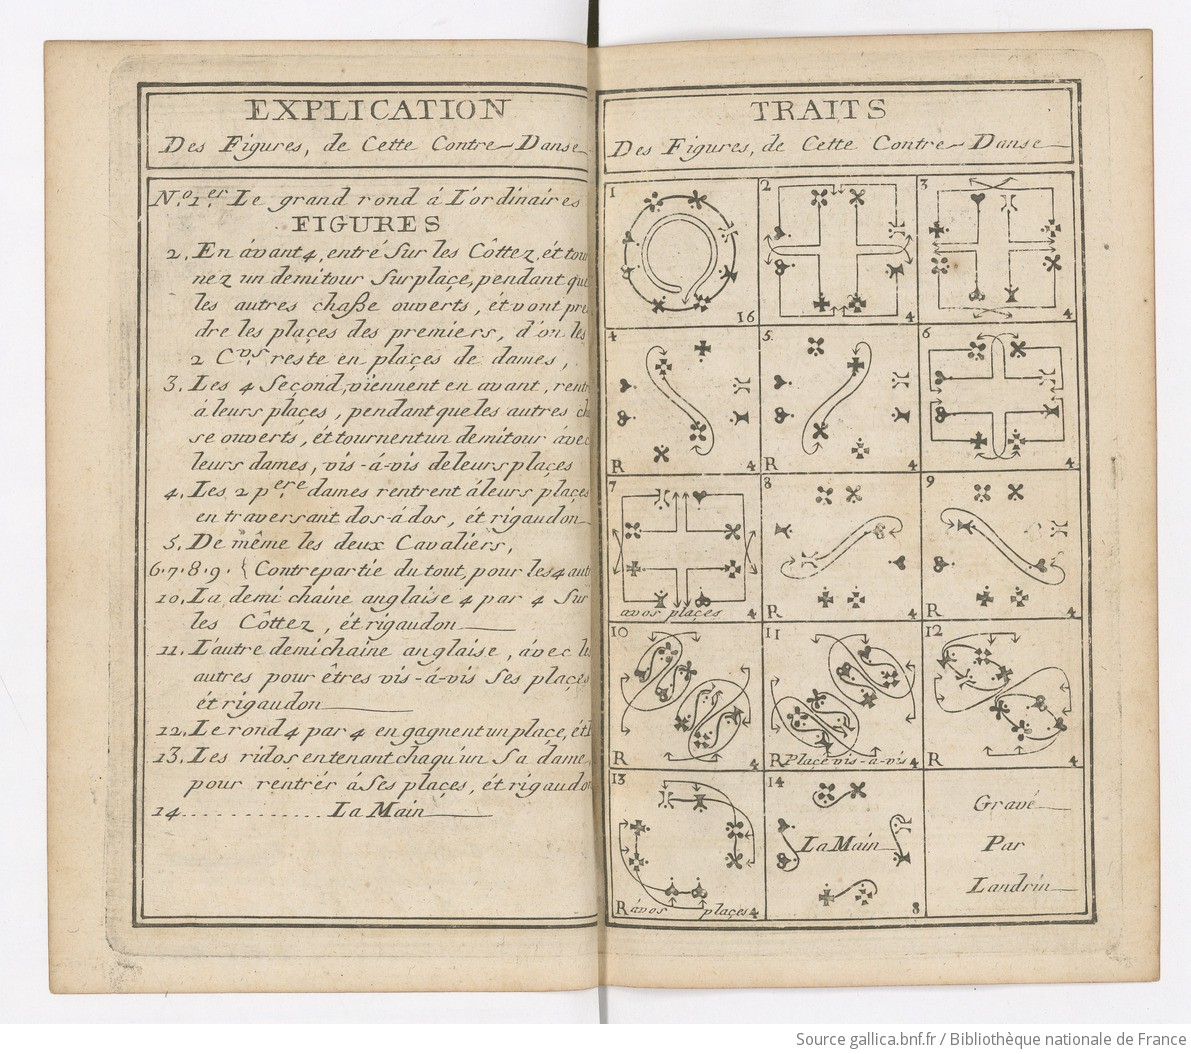 EXPLICATION
Des Figures, de Cette Contre-Danse
N.º 1.er Le grand rond á L'ordinaires
FIGURES
2. En ávant 4, entré Sur les Côttez, ét tour
nez un demi tour Sur plaçe, pendant que
les autres chaße ouverts, ét vont pre
dre les plaçes des premiers, d'ou les
2 C.vrs reste en plaçes de dames,
3. Les 4 Seçond, viennent en avant, rentr
á leurs plaçes, pendant que les autres ch
se ouverts, ét tournent un demi tour ávec
leurs dames, vis-á-vis de leurs plaçes
4. Les 2 p.ere dames rentrent á leurs plaçes
en traversant dos-á dos, ét rigaudon
5. De même les deux Cavaliérs,
6.7.8.9. { Contrepartie du tout, pour les 4 aut
10. La demi chaine anglaise 4 par 4 Sur
les Côttez, ét rigaudon
11. L'autre demi chaine anglaise, ávec le
autres pour êtres vis-á-vis Ses plaçes
ét rigaudon
12. Le rond 4 par 4 en gagnent un plaçe, ét
13. Les ridos en tenant chaqu'un Sa dame
pour rentrér á Ses plaçes, ét rigaudon
14............La Main
TRAITS
Des Figures, de Cette Contre-Danse
1
16
2
4
3
4
4
R
4
5.
R
4
6
4
7
avos plaçes
4
8
R
4
9
R
4
10
R
4
11
R Place vis-á-vis 4
12
R
4
13
R ávos plaçes 4
14
La Main
8
Gravé
Par
Landrin
Source gallica.bnf.fr / Bibliothèque nationale de France